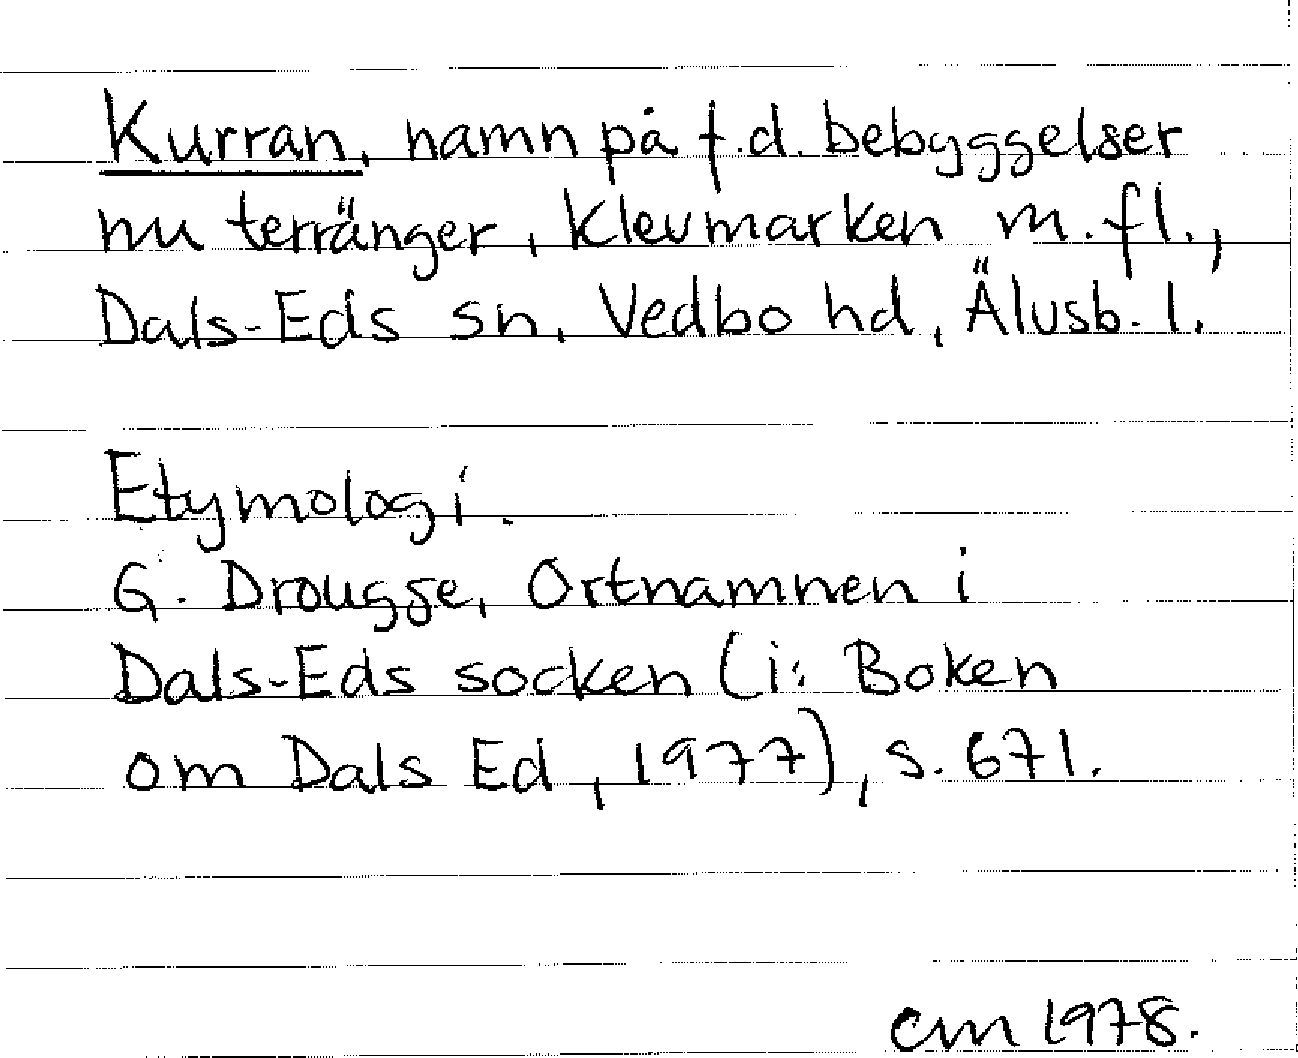 Kurran, namn på f.d. bebyggelser
nu terränger, Klevmarken m.fl.,
Dals-Eds sn, Vedbo hd, Älvsb. l.
Etymologi.
G. Drougge, Ortnamnen i
Dals-Eds socken (i: Boken
om Dals Ed, 1977), s. 671.
cm 1978.